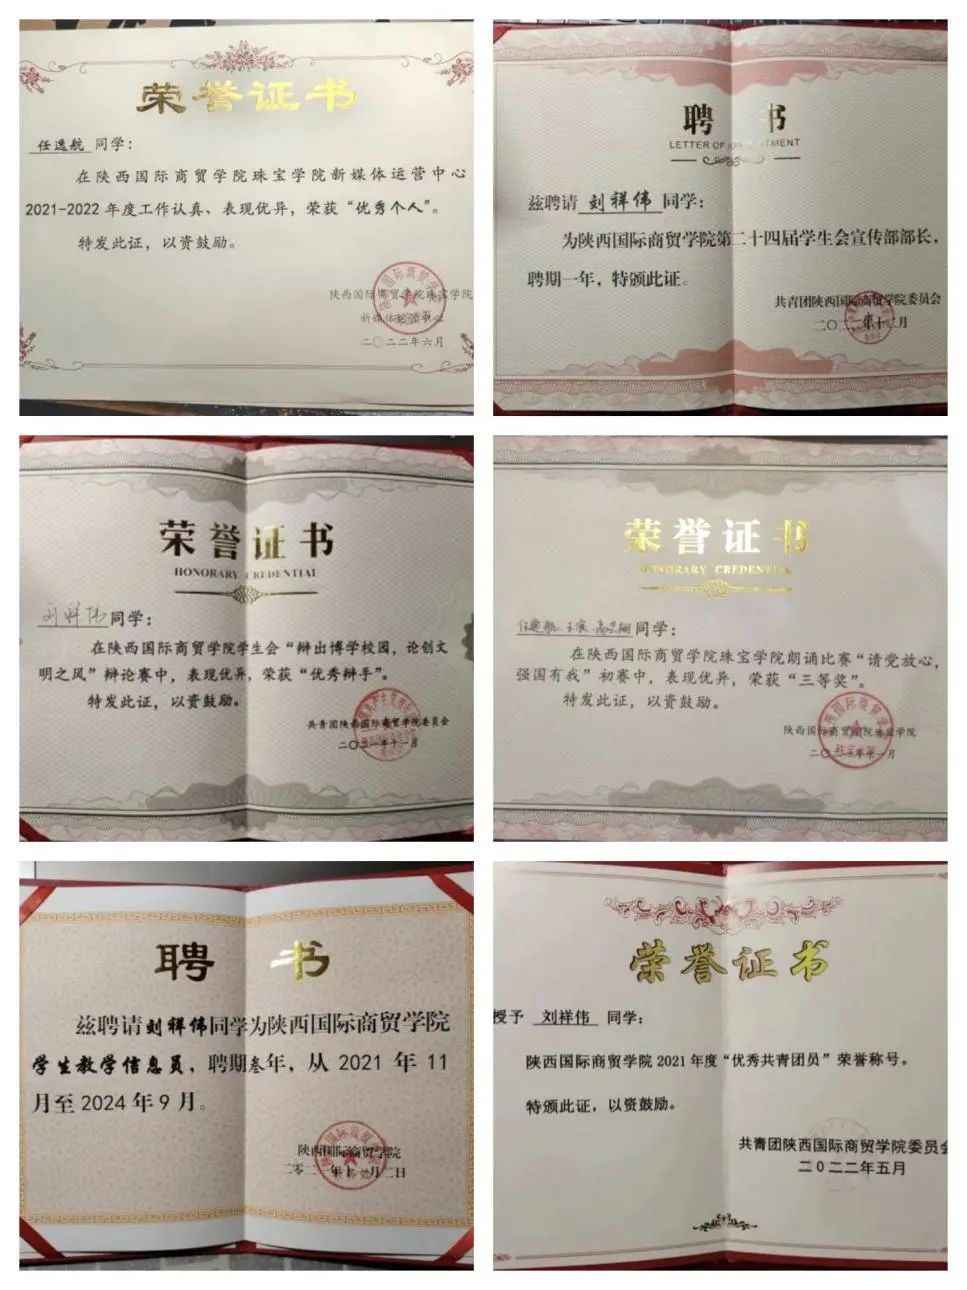 荣誉证书
任逸航 同学：
在陕西国际商贸学院珠宝学院新媒体运营中心
2021-2022 年度工作认真、表现优异，荣获“优秀个人”。
特发此证，以资鼓励。
陕西国际商贸学院珠宝学院
新媒体运营中心
二〇二二年六月
聘 书
LETTER OF APPOINTMENT
兹聘请 刘祥伟 同学：
为陕西国际商贸学院第二十四届学生会宣传部部长，
聘期一年，特颁此证。
共青团陕西国际商贸学院委员会
荣誉证书
HONORARY CREDENTIAL
刘祥伟 同学：
在陕西国际商贸学院学生会“辩出博学校园，论创文
明之风”辩论赛中，表现优异，荣获“优秀辩手”。
特发此证，以资鼓励。
共青团陕西国际商贸学院委员会
二〇二一年十一月
荣誉证书
HONORARY CREDENTIAL
同学：
在陕西国际商贸学院珠宝学院朗诵比赛“请党放心，
强国有我”初赛中，表现优异，荣获“三等奖”。
特发此证，以资鼓励。
陕西国际商贸学院珠宝学院
聘 书
兹聘请刘祥伟同学为陕西国际商贸学院
学生教学信息员，聘期叁年，从 2021 年 11
月至 2024 年 9 月。
陕西国际商贸学院
荣誉证书
授予 刘祥伟 同学：
陕西国际商贸学院 2021 年度“优秀共青团员”荣誉称号。
特颁此证，以资鼓励。
共青团陕西国际商贸学院委员会
二〇二二年五月